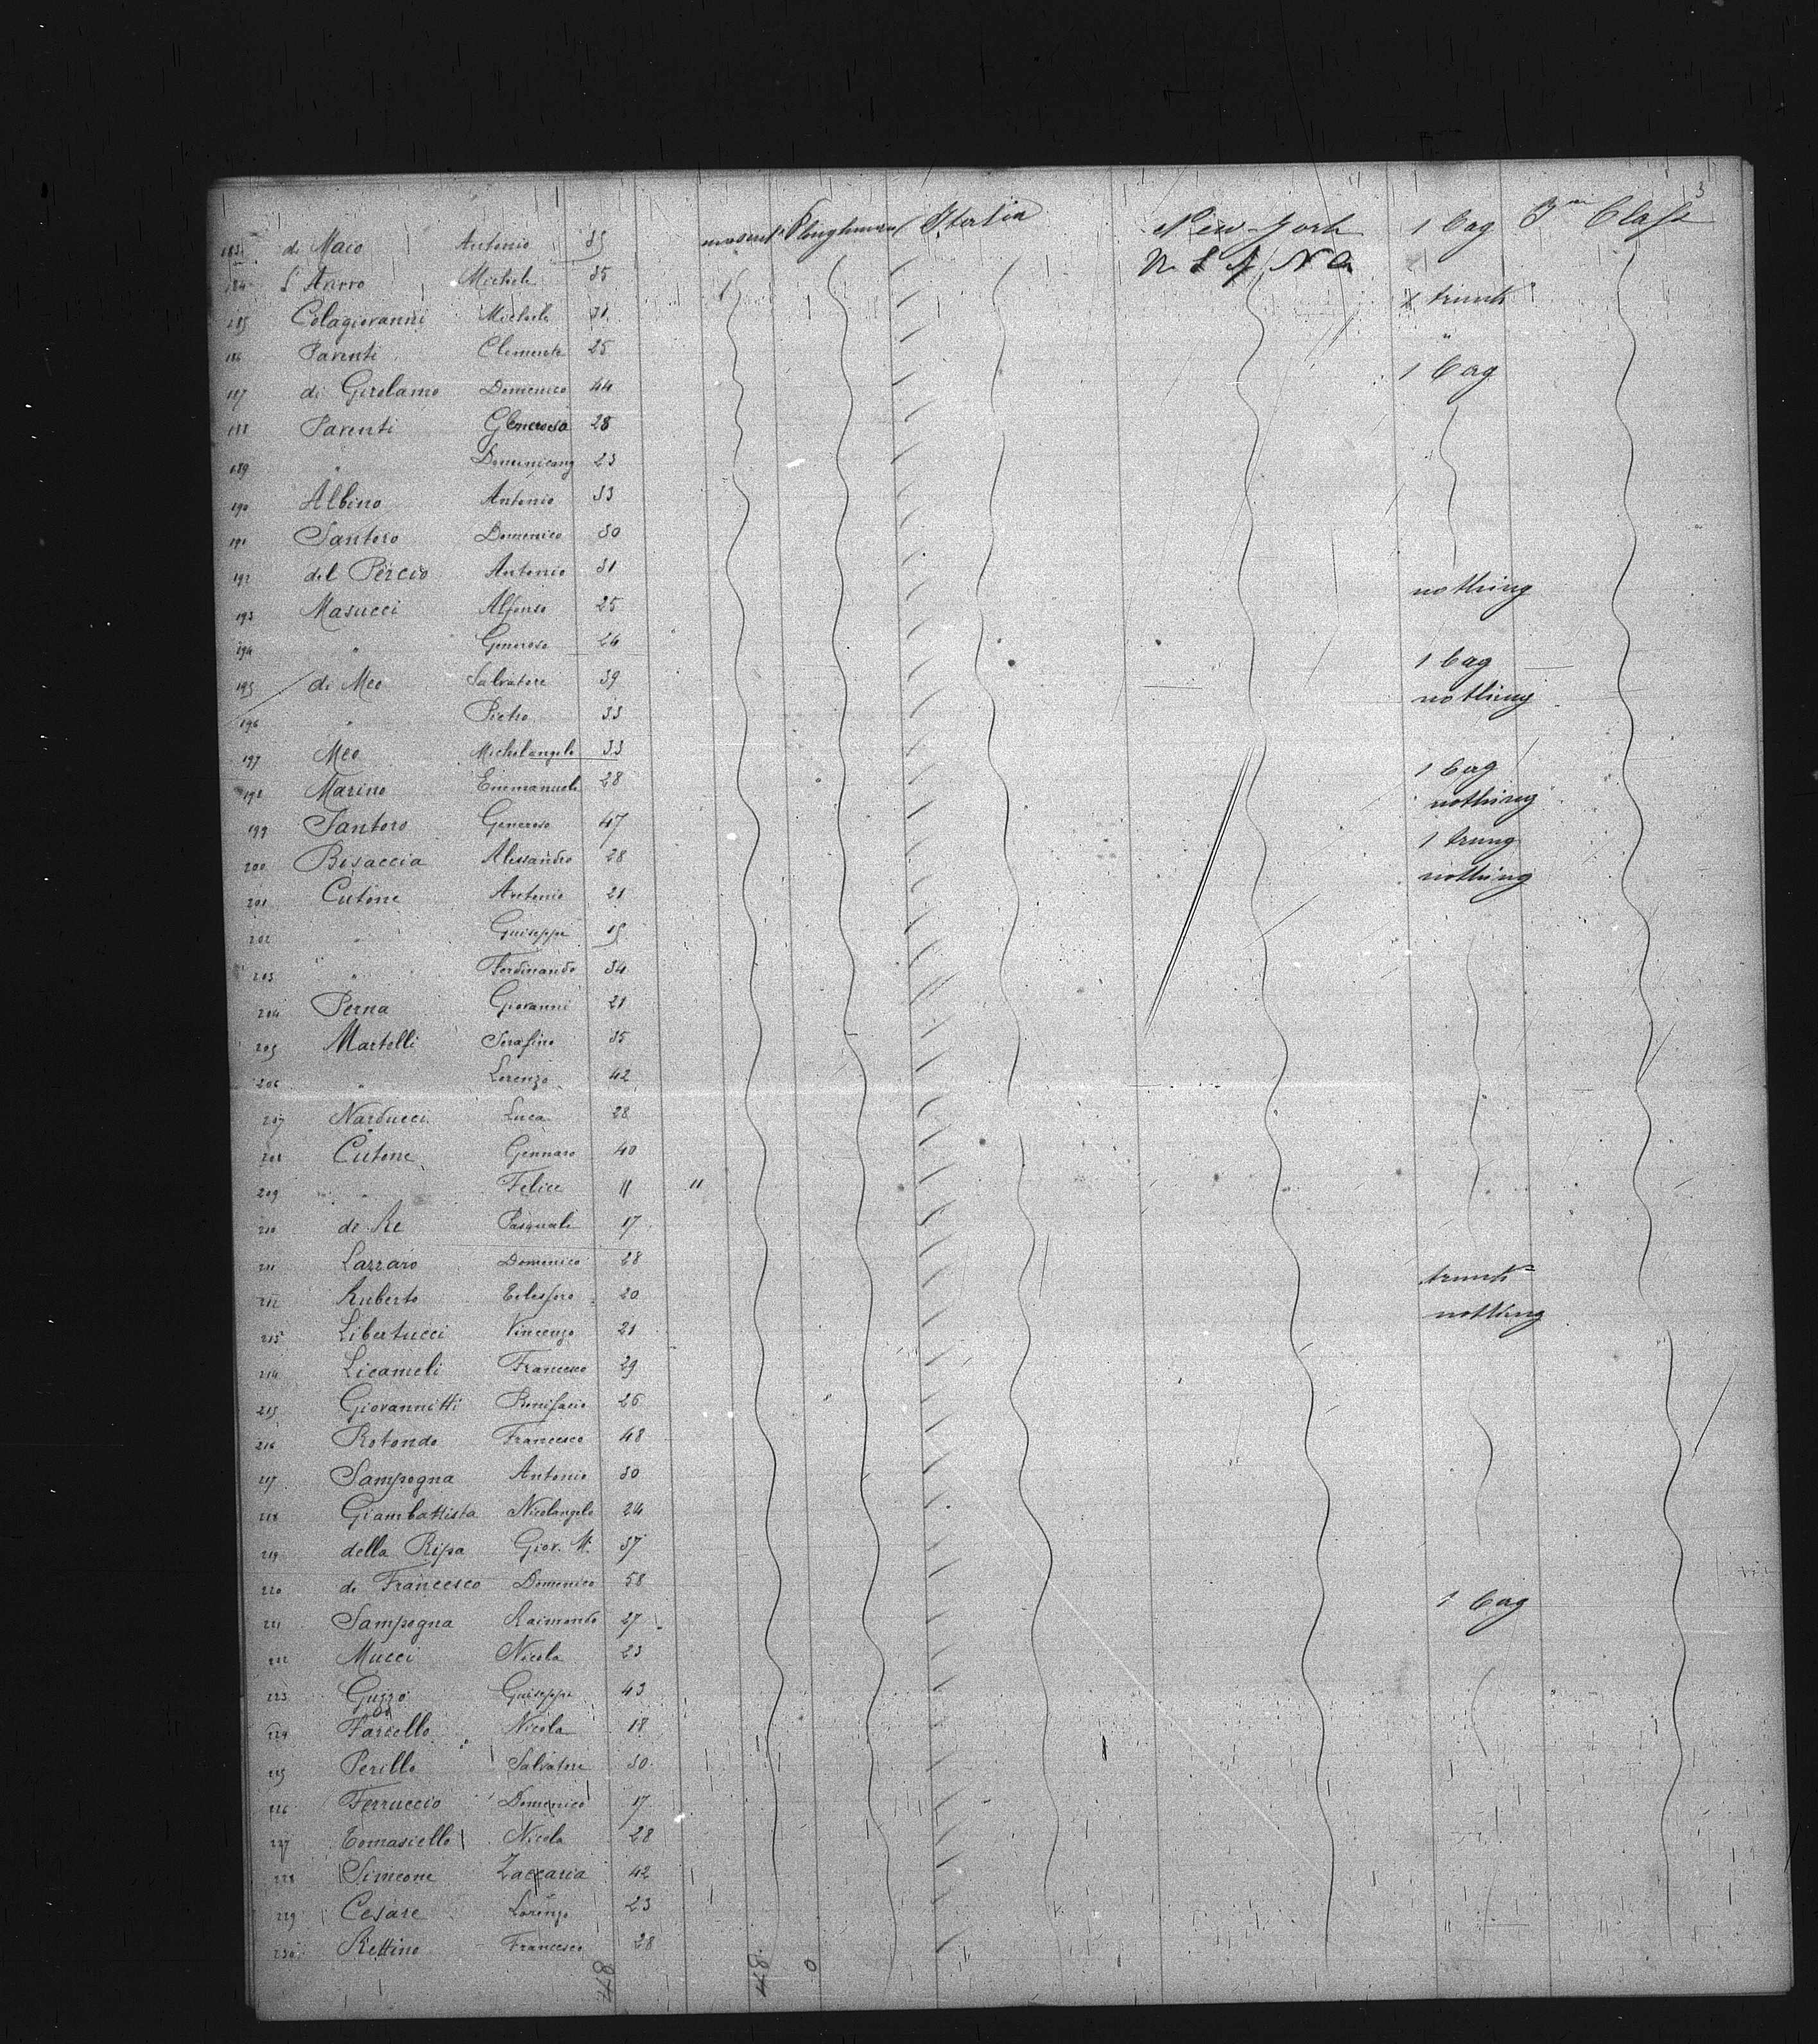 3
183 di Maio Antonio 35 Ploughman Italia New-York 1 bag 3 Class
184 Michele 35 U. S. of N A
185 Colagiovanni Michele 31 1 trunk
186 Parenti Clemente 25 "
187 di Girolamo Domenico 44 1 bag
188 Parenti Generosa 28
189 " 23
190 Albino Antonio 33
191 Santoro Domenico 30
192 del Percio Antonio 31
193 Masucci Alfonso 25 nothing
194 " Generoso 24
195 di Meo Salvatore 39 1 bag
196 " Pietro 33 nothing
197 Meo Michelangelo 33
198 Marino Emmanuele 28 1 bag
199 Santoro Generoso 47 nothing
200 Bisaccia Alessandro 28 1 trung
201 Cutone Antonio 21 nothing
202 " Guiseppe 15
203 " Ferdinando 34
204 Perna Giovanni 21
205 Martelli Serafino 35
206 " Lorenzo 42
207 Narducci Luca 28
208 Cutone Gennaro 40
209 " Felice 11 "
210 de Re Pasquale 17
211 Lazzaro Domenico 28
212 Ruberto 20 trunk
213 Libertucci Vincenzo 21 nothing
214 Licameli Francesco 29
215 Giovannitti Bonifacio 26
216 Rotondo Francesco 48
217 Sampogna Antonio 30
218 Giambattista Nicolangelo 24
219 della Ripa Giov. M. 37
220 de Francesco Domenico 58
221 Sampogna Raimondo 27 1 bag
222 Mucci Nicola 23
223 Guzzo Guiseppe 43
224 Farcello Nicola 18
225 Perillo Salvatore 30
226 Ferruccio Domenico 17
227 Tomasiello Nicola 28
228 Simeone Zaccaria 42
229 Cesare Lorenzo 23
230 Rettino Francesco 28
0